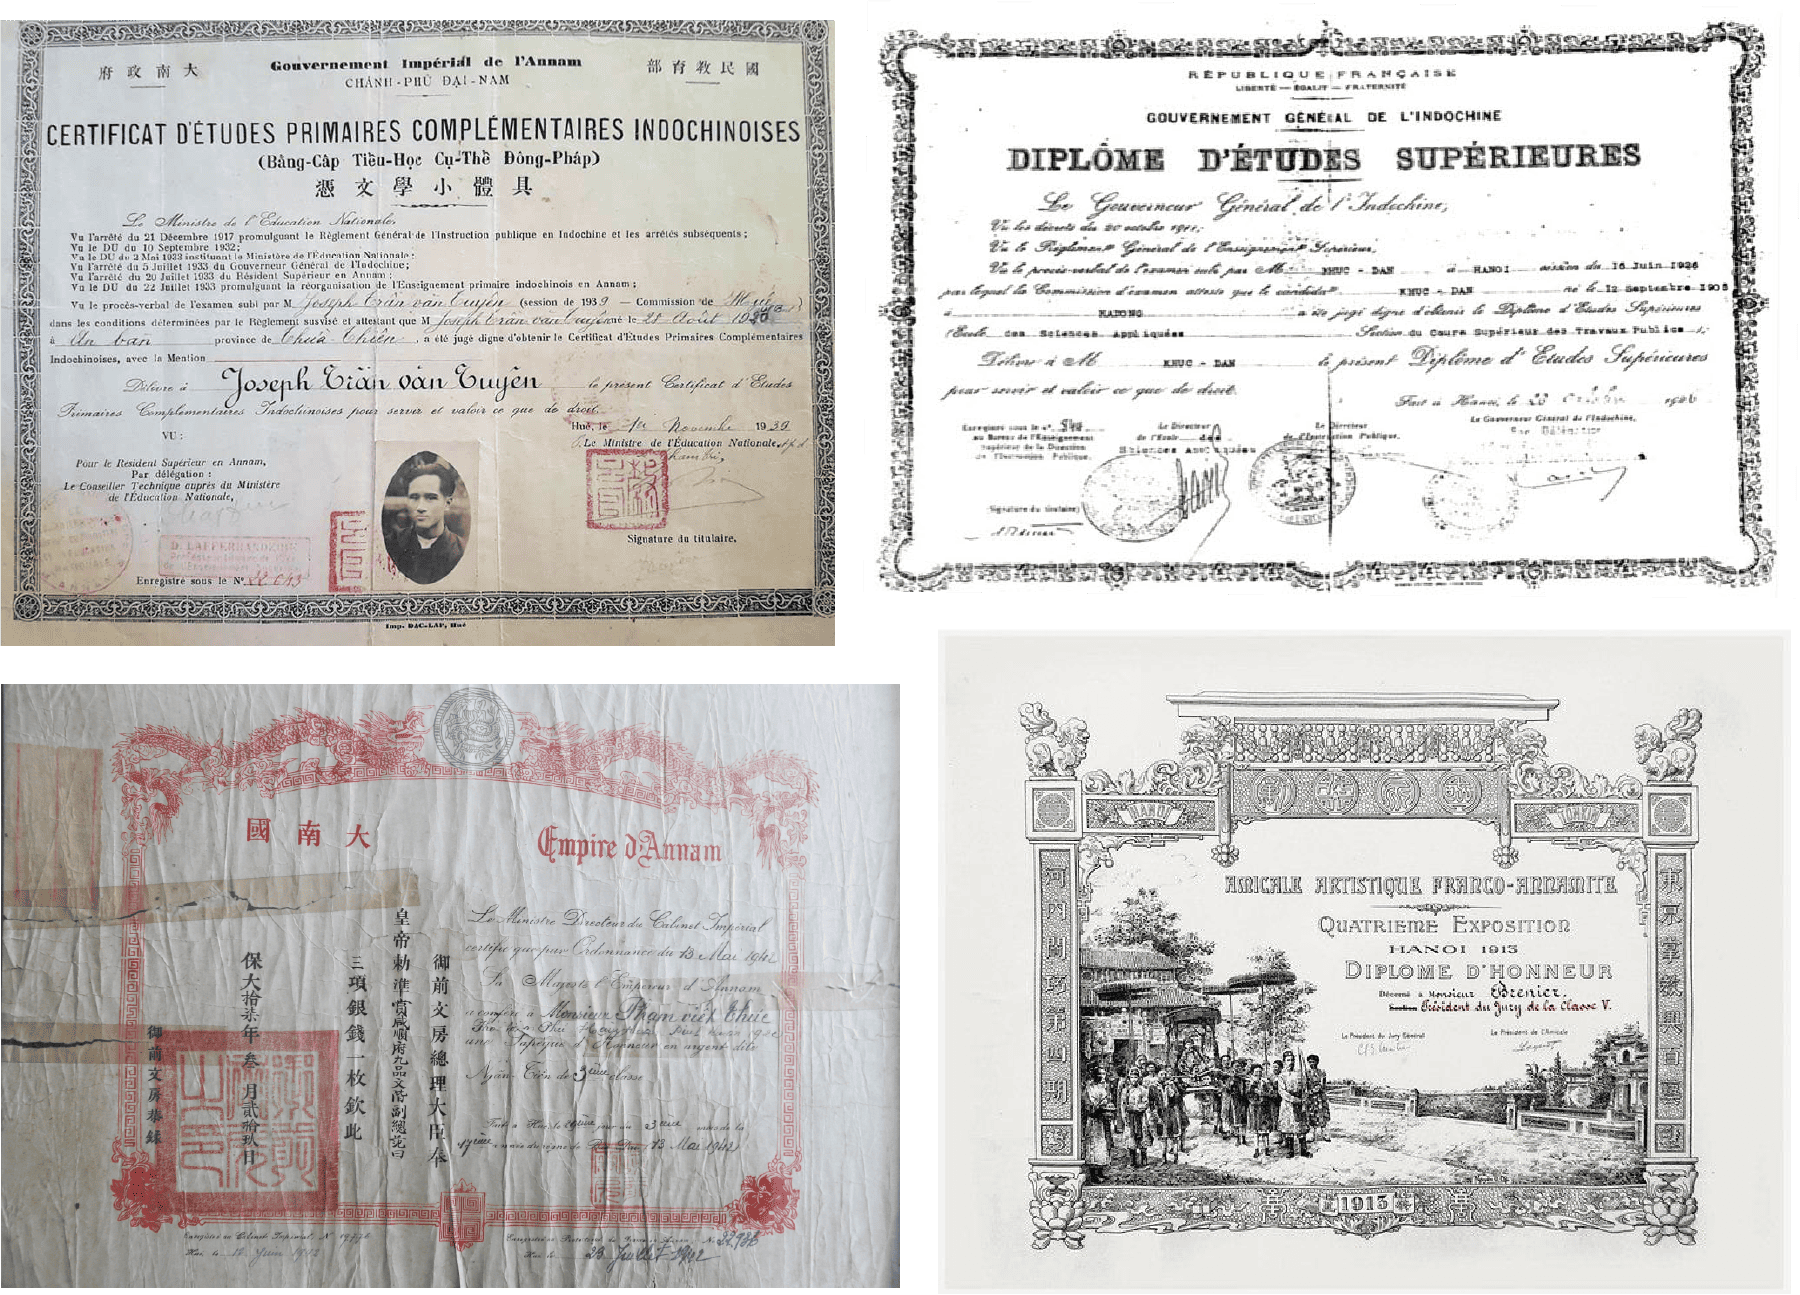 府政南大
Gouvernement Impérial de l'Annam
CHÁNH-PHỦ ĐẠI-NAM
部育教民國
CERTIFICAT D'ÉTUDES PRIMAIRES COMPLÉMENTAIRES INDOCHINOISES
(Bằng-Cấp Tiểu-Học Cụ-Thể Đông-Pháp)
憑文學小體具
Le Ministre de l'Education Nationale,
Vu l'arrêté du 21 Décembre 1917 promulguant le Règlement Général de l'Instruction publique en Indochine et les arrêtés subséquents;
Vu le DU du 10 Septembre 1932;
Vu le DU du 2 Mai 1933 instituant le Ministère de l'Éducation Nationale;
Vu l'arrêté du 5 Juillet 1933 du Gouverneur Général de l'Indochine;
Vu l'arrêté du 20 Juillet 1933 du Résident Supérieur en Annam;
Vu l'arrêté du 22 Juillet 1933 promulguant la réorganisation de l'Enseignement primaire indochinois en Annam;
Vu le procès-verbal de l'examen subi par M Joseph Trần văn Tuyên (session de 1939 — Commission de Huế
dans les conditions déterminées par le Règlement susvisé et attestant que M Joseph Trần văn Tuyên né le 28 Août
à An Vân province de Thừa Thiên, a été jugé digne d'obtenir le Certificat d'Études Primaires Complémentaires
Indochinoises, avec la Mention
Délivré à Joseph Trần văn Tuyên le présent Certificat d'Études
Primaires Complémentaires Indochinoises pour servir et valoir ce que de droit.
Hué, le Novembre 1939
VU:
Le Ministre de l'Éducation Nationale,
Pour le Resident Supérieur en Annam,
Par délégation:
Le Conseiller Technique auprès du Ministère
de l'Éducation Nationale,
Signature du titulaire.
Enregistré sous le Nº 22043
Imp. DAC-LAP, Hué
RÉPUBLIQUE FRANÇAISE
LIBERTÉ — ÉGALIT — FRATERNITÉ
GOUVERNEMENT GÉNÉRAL DE L'INDOCHINE
DIPLÔME D'ÉTUDES SUPÉRIEURES
Le Gouverneur Général de l'Indochine,
Vu les décrets du 20 octobre 1911;
Vu le Règlement Général de l'Enseignement Supérieur;
Vu le procès-verbal de l'examen subi par M KHUC - DAN à HANOI session du 16 Juin 1926
par lequel la Commission d'examen atteste que le candidat KHUC - DAN né le 12 Septembre 1905
à HADONG a été jugé digne d'obtenir le Diplôme d'Etudes Supérieures
(École des Sciences Appliquées Section du Cours Supérieur des Travaux Publics);
Délivré à M KHUC - DAN le présent Diplôme d'Etudes Supérieures
pour servir et valoir ce que de droit.
Fait à Hanoi, le 1926
Enregistré sous le nº
au Bureau de l'Enseignement
Supérieur de la Direction
de l'Instruction Publique.
Le Directeur
de l'École des
Sciences Appliquées
Le Directeur
de l'Instruction Publique,
Le Gouverneur Général de l'Indochine,
Signature du titulaire:
國南大
Empire d'Annam
Le Ministre Directeur du Cabinet Impérial
certifie que par Ordonnance du 13 Mai 1942
Sa Majesté l'Empereur d'Annam
a conféré à Monsieur Phạm viết Thức
une Sapèque d'Honneur en argent dite
Ngân-Tiền de 3ème classe
御前文房總理大臣奉
皇帝勅準賞咸順府九品文階副總
三項銀錢一枚欽此
保大拾柒年叁月貳拾玖日
御前文房恭錄
13 Mai 1942
Enregistré au Cabinet Impérial, Nº
Hué le Juin 1942
Hué le 23 Juillet 1942
HANOI
TONKIN
AMICALE ARTISTIQUE FRANCO-ANNAMITE
QUATRIEME EXPOSITION
HANOI 1915
DIPLOME D'HONNEUR
Décerné à Monsieur Brenier.
Président du Jury de la Classe V.
Le Président du Jury Général
Le Président de l'Amicale
1915